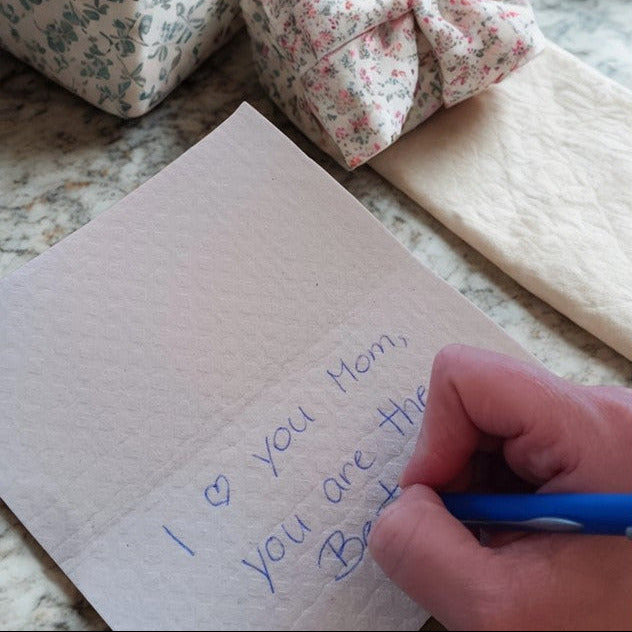 I ♡ you Mom,
you are the
Best